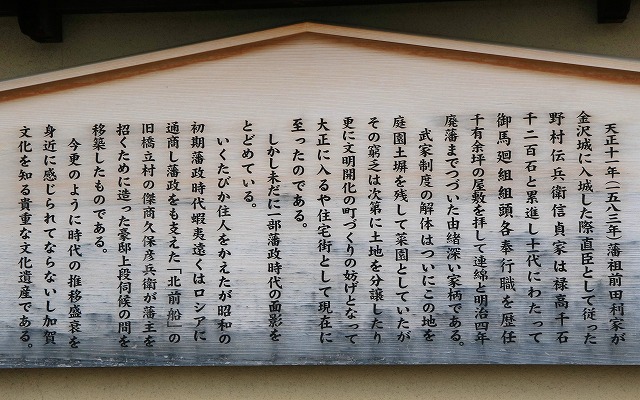 天正十一年(一五八三年)藩祖前田利家が
金沢城に入城した際直臣として従った
野村伝兵衛信貞家は禄高千石
千二百石と累進し十代にわたって
御馬廻組組頭各奉行職を歴任
千有余坪の屋敷を拝して連綿と明治四年
廃藩までつづいた由緒深い家柄である。
武家制度の解体はついにこの地を
庭園土塀を残して菜園としていたが
その窮乏は次第に土地を分譲したり
更に文明開化の町づくりの妨げとなって
大正に入るや住宅街として現在に
至ったのである。
しかし未だに一部藩政時代の面影を
とどめている。
いくたびか住人をかえたが昭和の
初期藩政時代蝦夷遠くはロシアに
通商し藩政をも支えた「北前船」の
旧橋立村の傑商久保彦兵衛が藩主を
招くために造った豪邸上段伺候の間を
移築したものである。
今更のように時代の推移盛衰を
身近に感じられてならないし加賀
文化を知る貴重な文化遺産である。